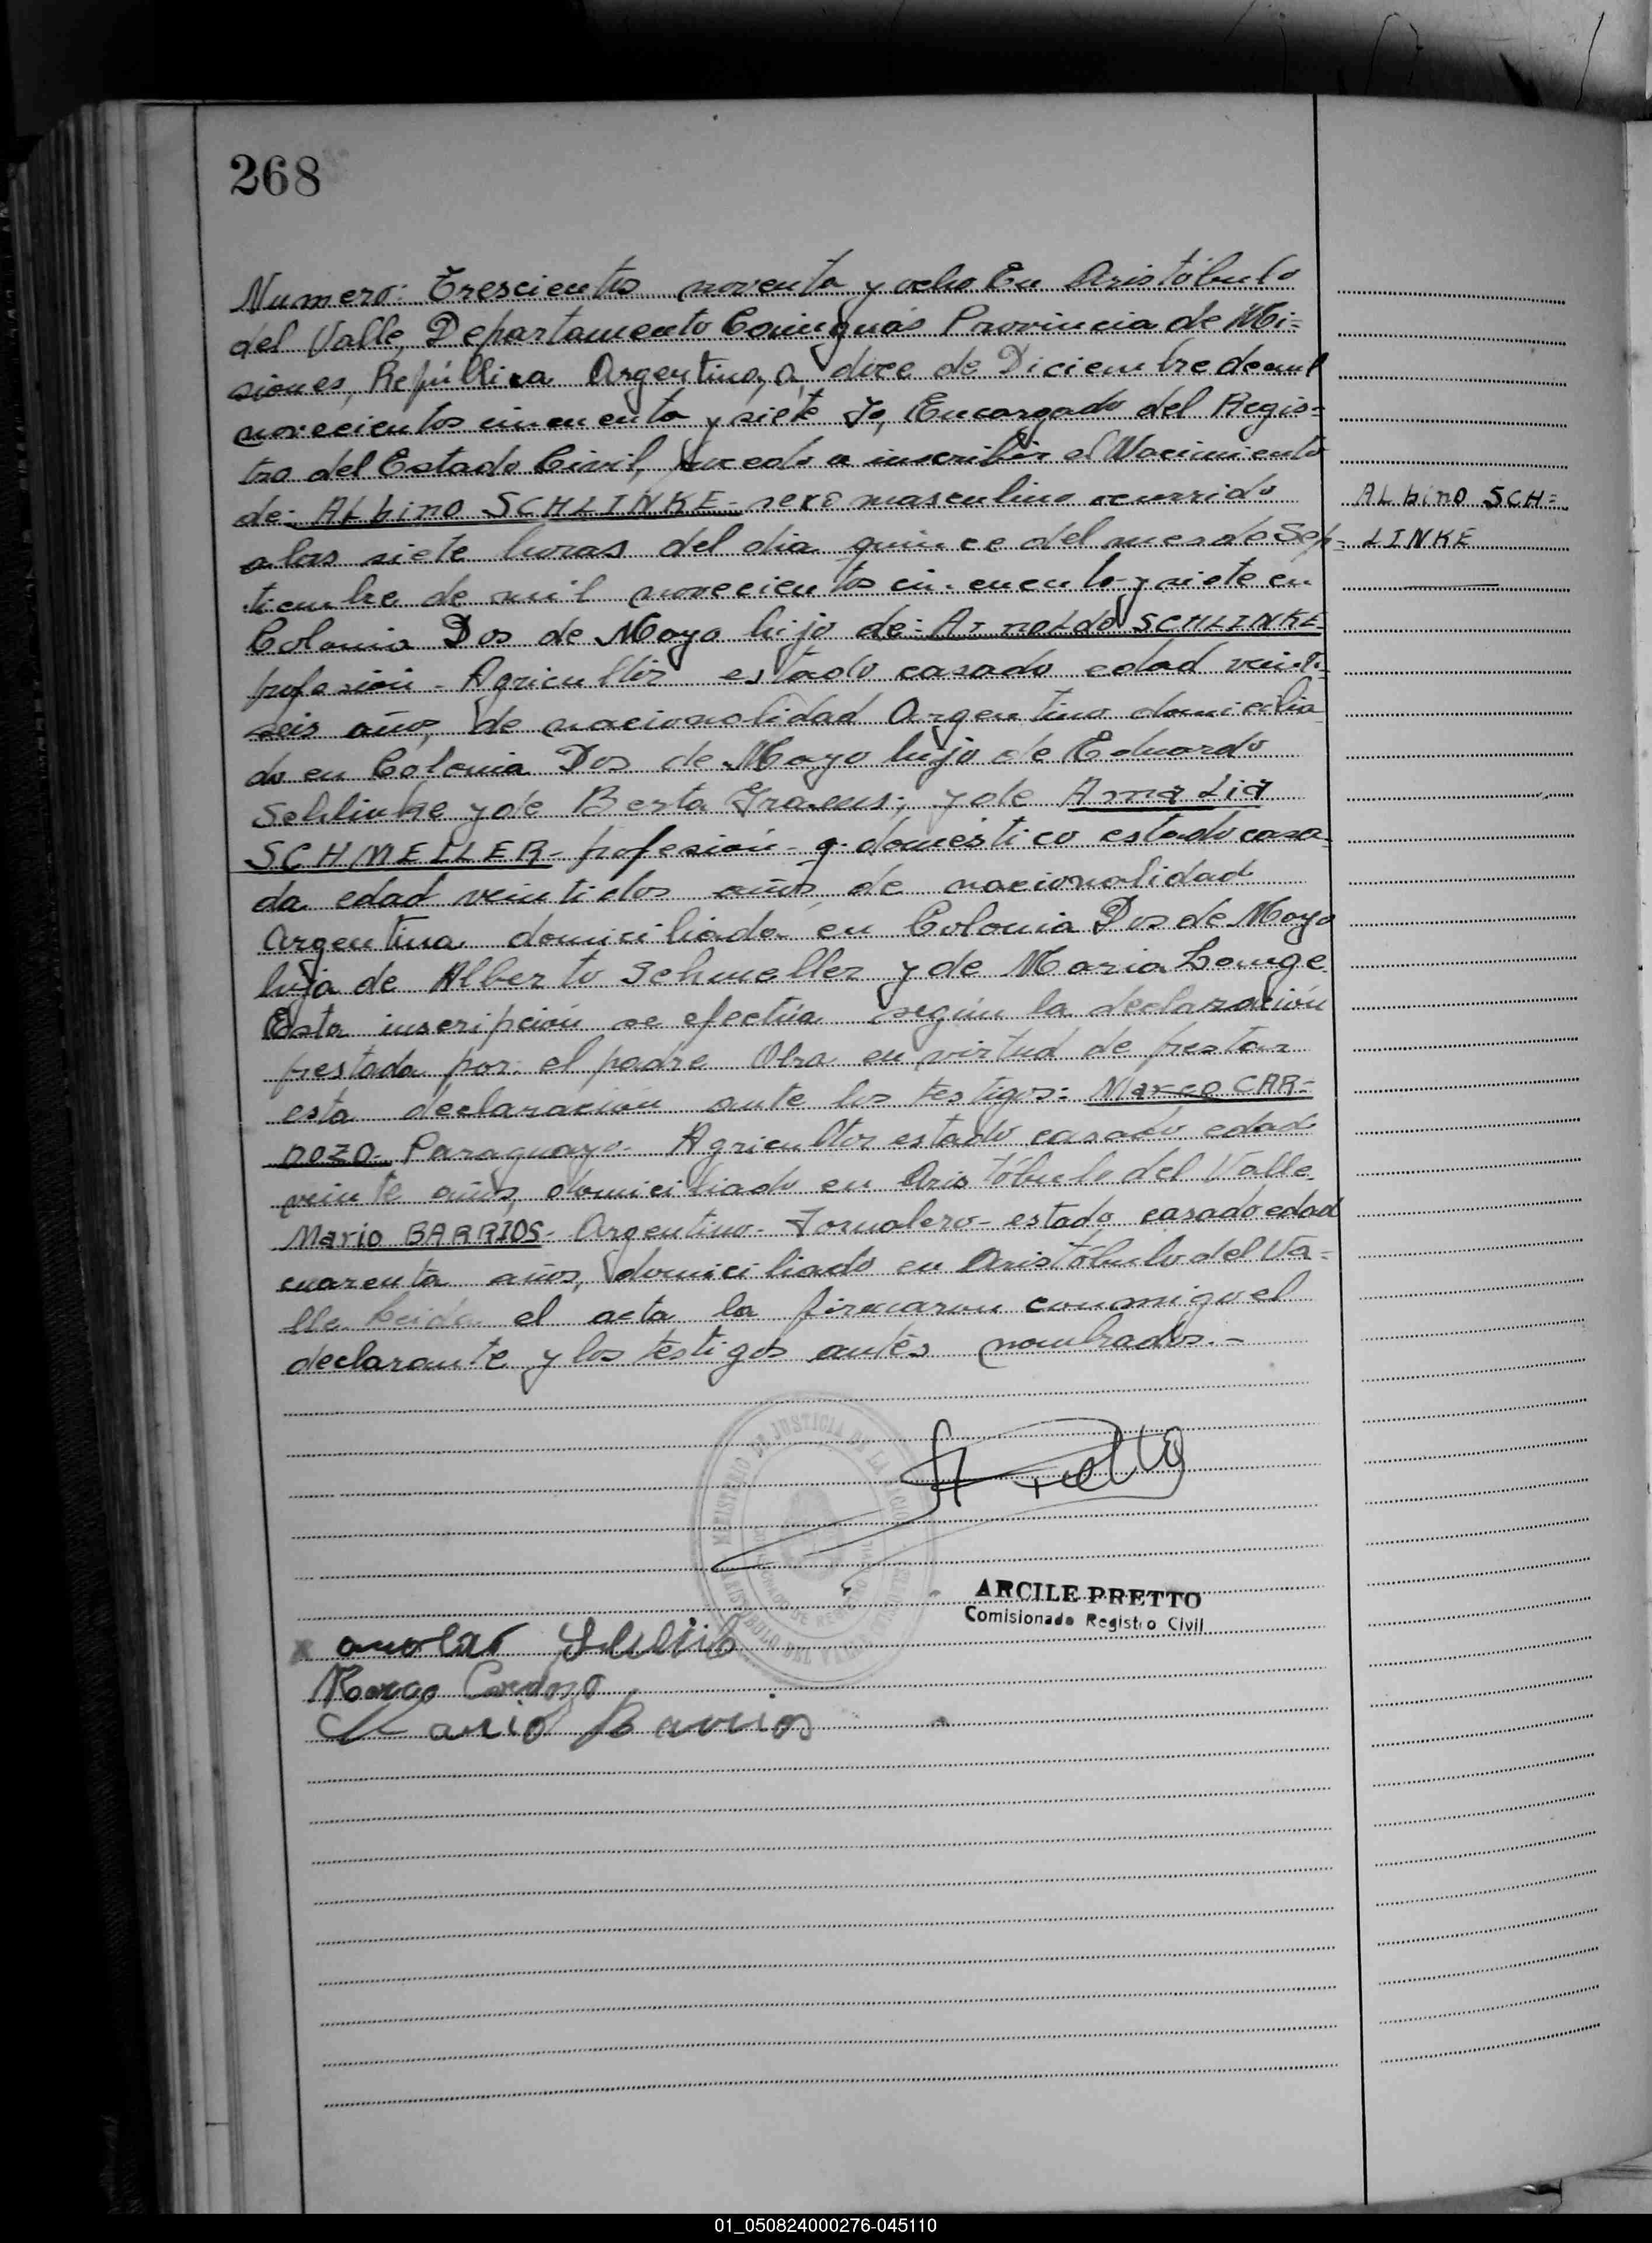 268
Numero: Trescientos noventa y ocho En Aristóbulo
del Valle, Departamento Cainguás Provincia de Mi=
siones, República Argentina, a doce de Diciembre de mil
novecientos cincuenta y siete Yo, Encargado del Regis=
tro del Estado Civil, procedo a inscribir el Nacimiento
de: ALbino SCHLINKE - sexo masculino ocurrido
a las siete horas del dia quince del mes de Sep=
tiembre de mil novecientos cincuenta y siete en
Colonia Dos de Mayo hijo de: ArnoLdo SCHLINKE-
profesión - Agricultor estado casado edad veinti=
seis años, de nacionalidad Argentina domicilia
do en Colonia Dos de Mayo hijo de Eduardo
Schlinke y de Berta ; y de AmaLia
SCHMELLER - profesión - q. doméstico estado casa
da edad veintidos años de nacionalidad
Argentina domiciliada en Colonia Dos de Mayo
hija de Alberto Schmeller y de Maria Lange
Esta inscripción se efectúa según la declaración
prestada por el padre Obra en virtud de prestar
esta declaración ante los testigos: Marco CAR=
DOZO - Paraguayo - Agricultor estado casado edad
veinte años, domiciliado en Aristóbulo del Valle
Mario BARRIOS - Argentino - Jornalero - estado casado edad
cuarenta años, domiciliado en Aristóbulo del Va=
lle Leida el acta la firmaron conmigo el
declarante y los testigos antes nombrados.-
ALbino SCH=
LINKE
MINISTERIO DE JUSTICIA DE LA NACION
ARISTOBULO DEL VALLE
ARCILE PRETTO
Comisionado Registro Civil
Marco Cardozo
Mario Barrios
01_050824000276-045110